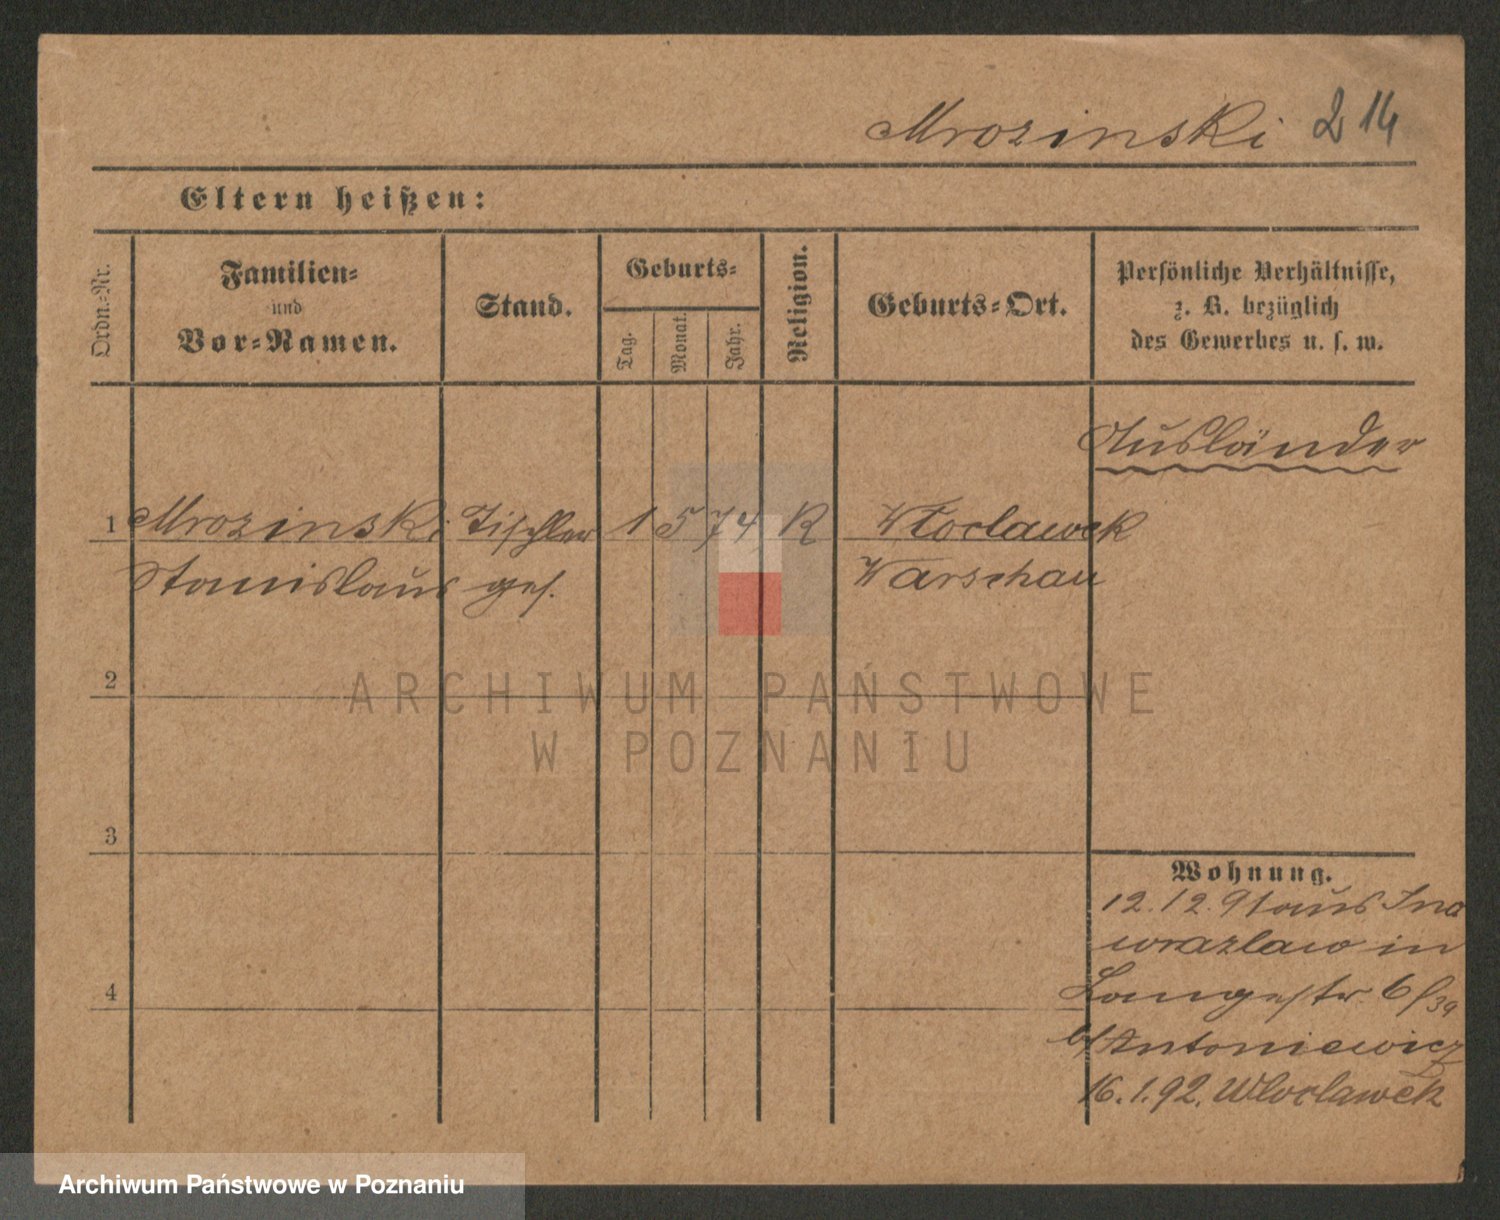 Mrozinski 214
Eltern heißen:
Ordn.-Nr.
Familien-
und
Vor-Namen.
Stand.
Geburts-
Tag.
Monat.
Jahr.
Religion.
Geburts-Ort.
Persönliche Verhältnisse,
z. B. bezüglich
des Gewerbes u. s. w.
Ausländer
1 Mrozinski Tischler 1 5 74 K Wloclawek
Stanislaus ges. Warschau
2
3
4
Wohnung.
12.12.91 aus Ino
wrazlaw in
Langestr. 6 /39
b/Antoniewicz
16.1.92. Wloclawek
ARCHIWUM PAŃSTWOWE
W POZNANIU
Archiwum Państwowe w Poznaniu